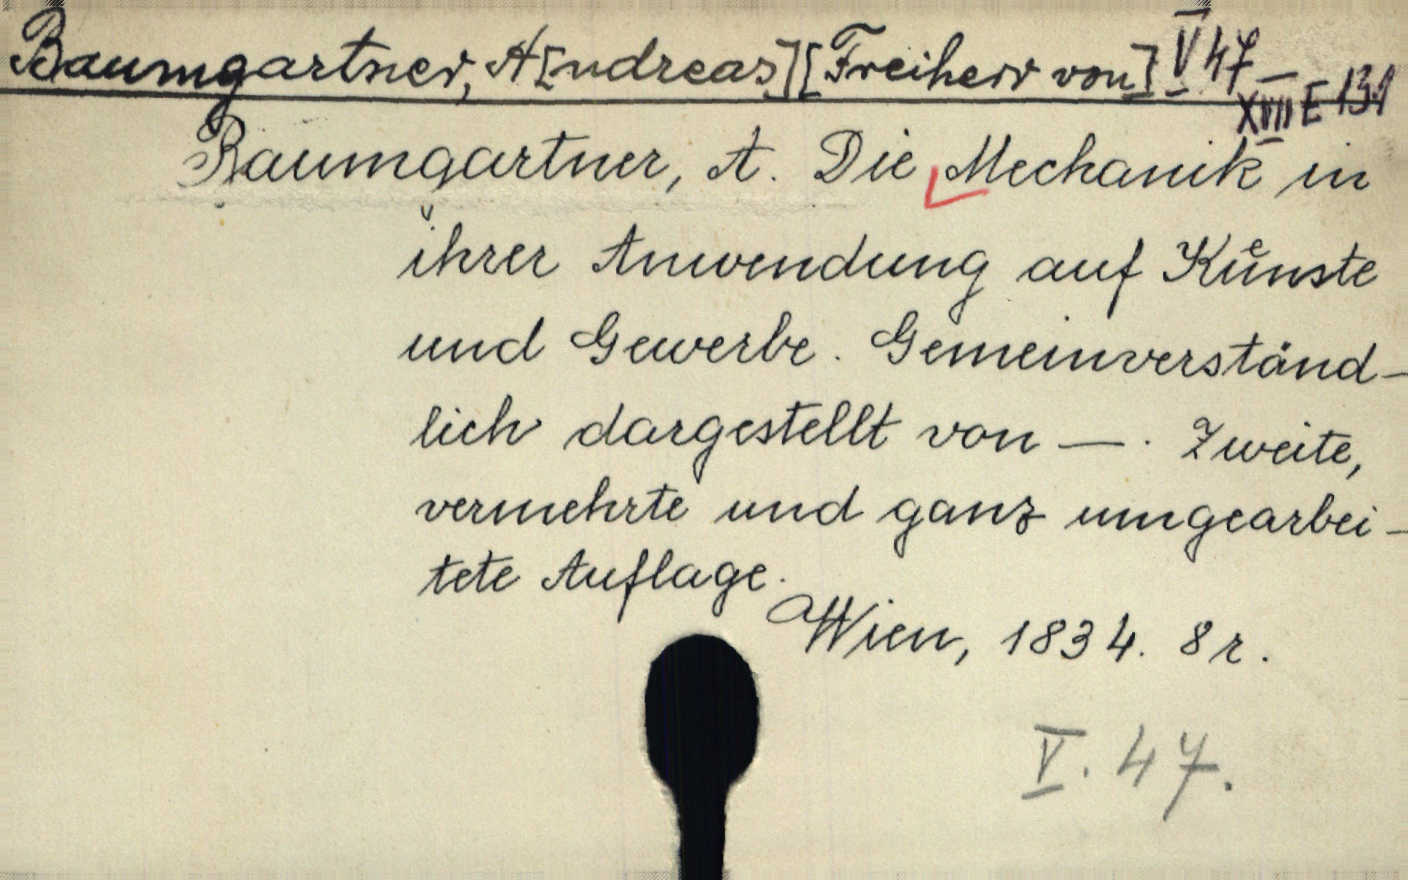 Baumgartner, A[ndreas] [Freiherr von] V 47
XVIII E 131
Baumgartner, A. Die Mechanik in
ihrer Anwendung auf Kuͤnste
und Gewerbe. Gemeinverständ-
lich dargestellt von —. Zweite,
vermehrte und ganz umgearbei-
tete Auflage.
Wien, 1834. 8r.
V. 47.